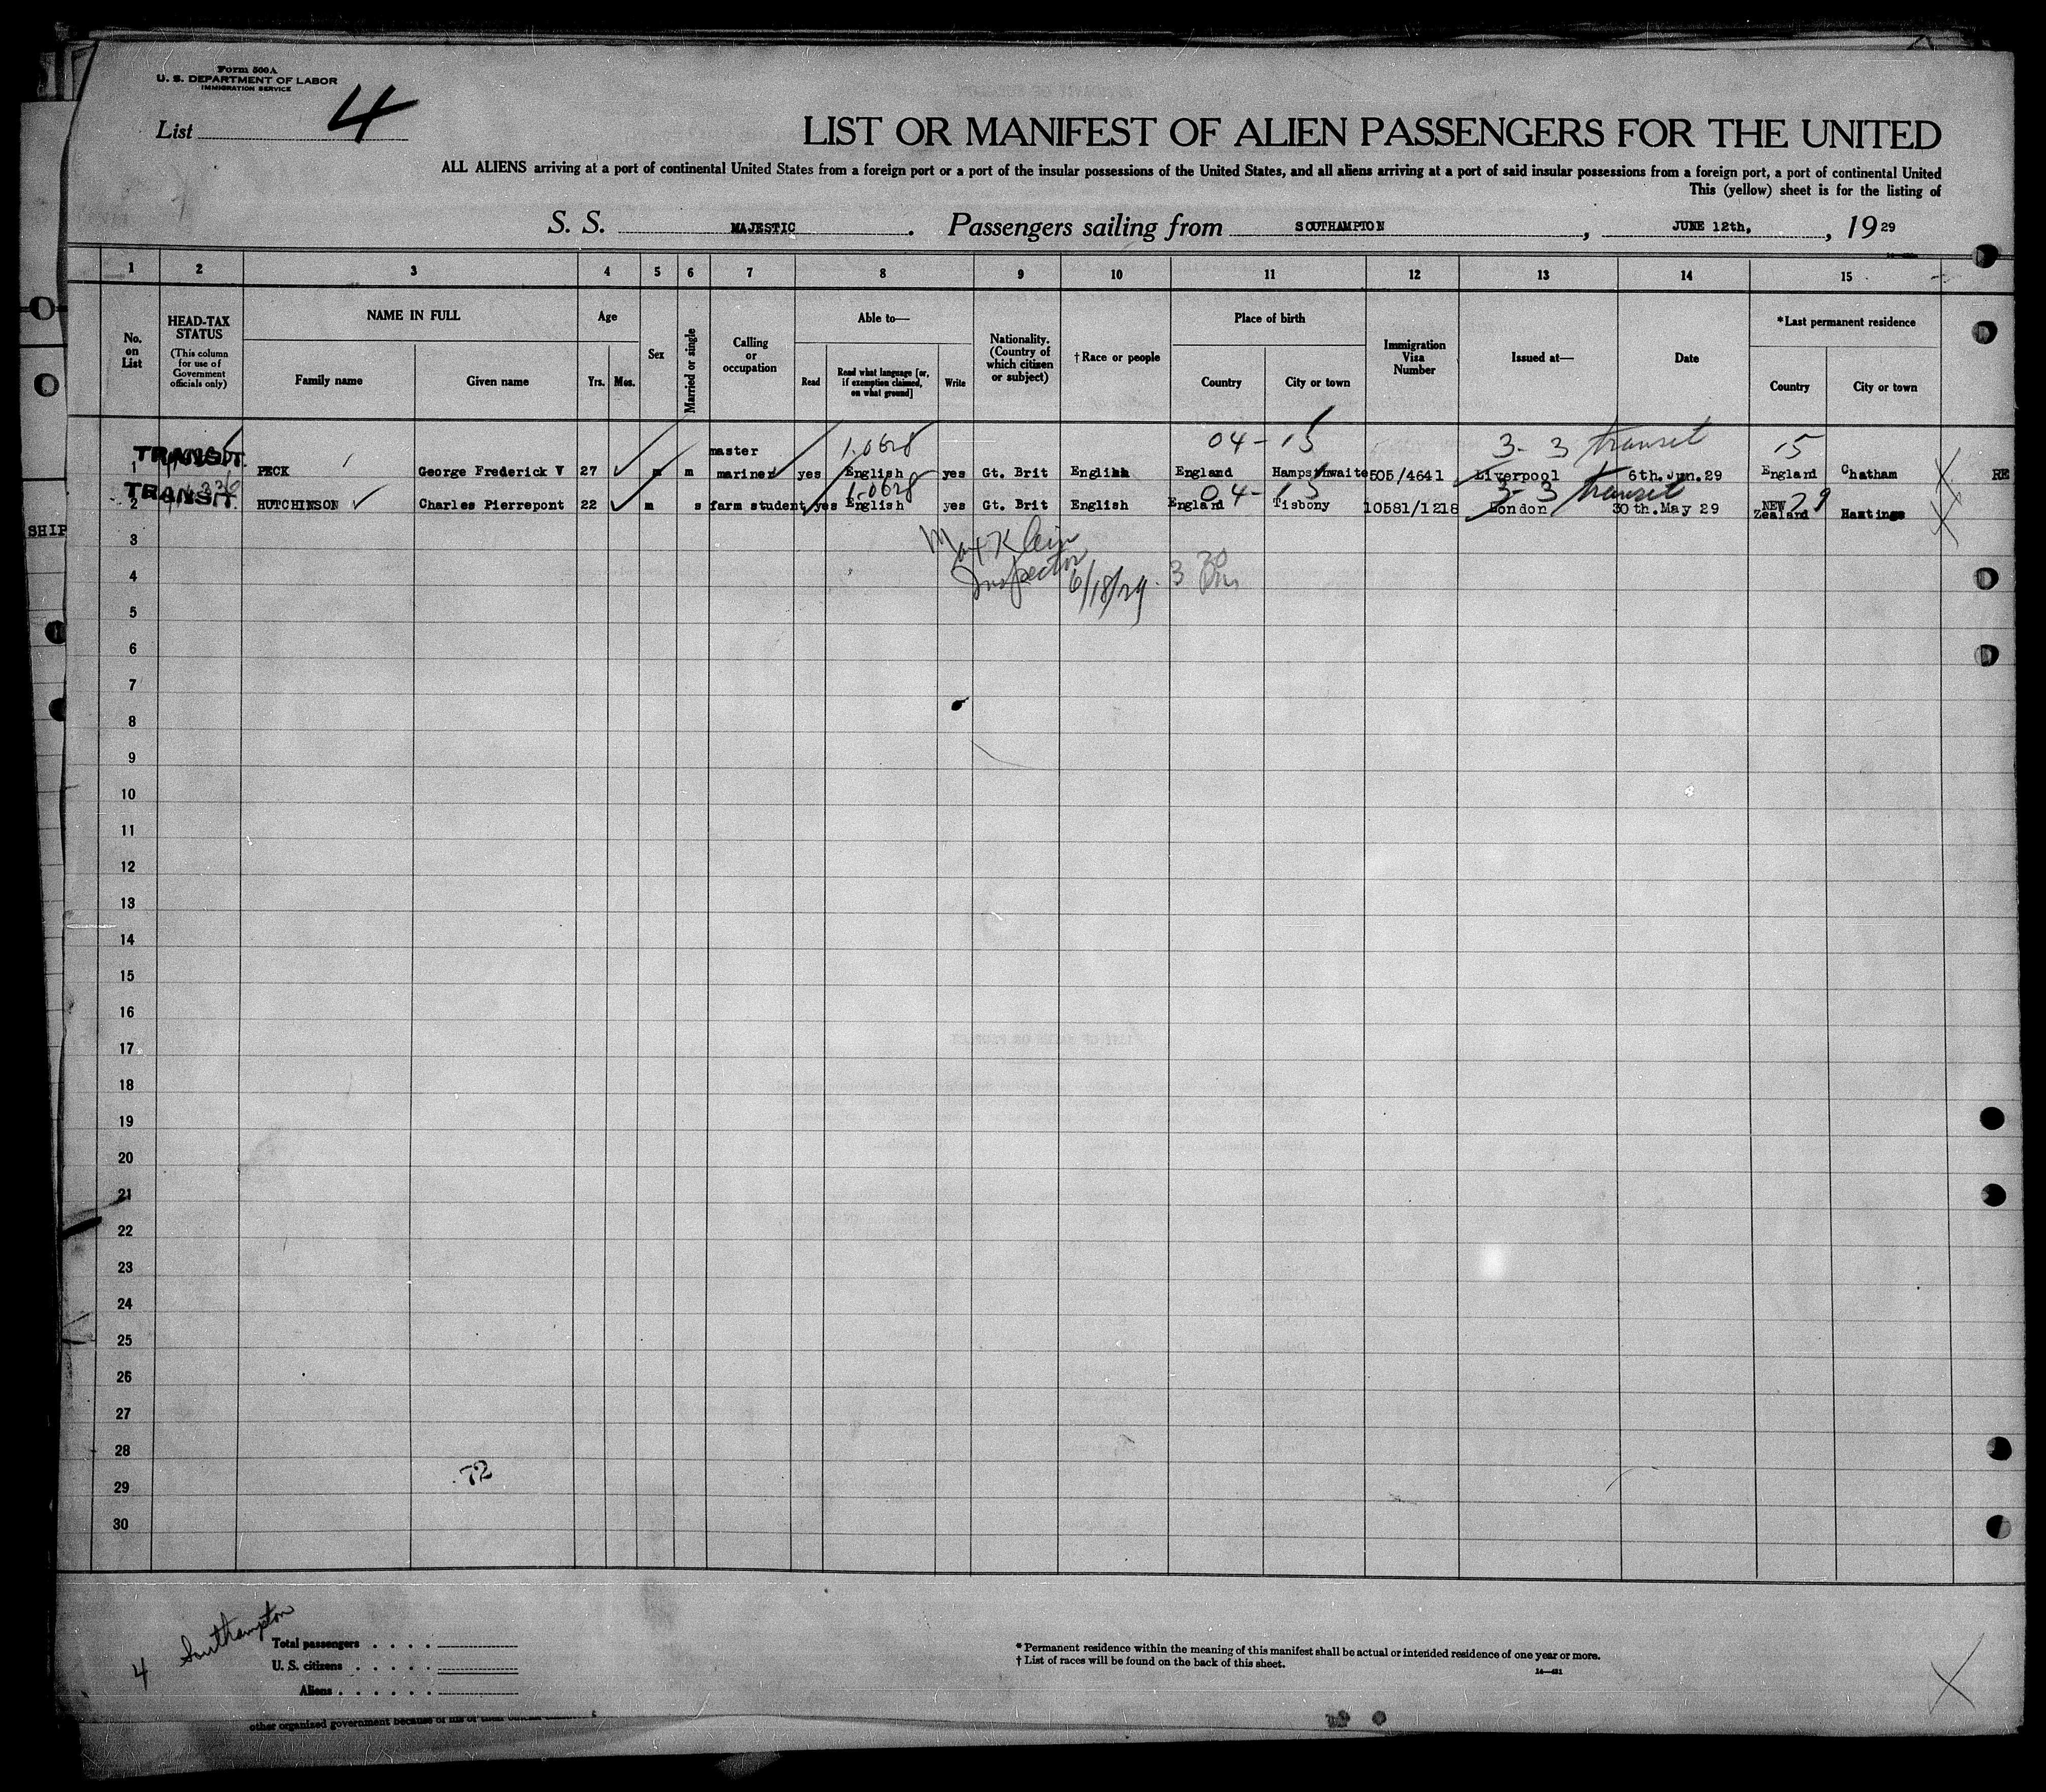 Form 500A
U. S. DEPARTMENT OF LABOR
IMMIGRATION SERVICE
List 4
LIST OR MANIFEST OF ALIEN PASSENGERS FOR THE UNITED
ALL ALIENS arriving at a port of continental United States from a foreign port or a port of the insular possessions of the United States, and all aliens arriving at a port of said insular possessions from a foreign port, a port of continental United
This (yellow) sheet is for the listing of
S. S. MAJESTIC. Passengers sailing from SOUTHAMPTON, JUNE 12th, , 1929
1 2 3 4 5 6 7 8 9 10 11 12 13 14 15
No. on List
HEAD-TAX STATUS (This column for use of Government officials only)
NAME IN FULL
Family name
Given name
Age
Yrs.
Mos.
Sex
Married or single
Calling or occupation
Able to—
Read
Read what language [or, if exemption claimed, on what ground]
Write
Nationality. (Country of which citizen or subject)
†Race or people
Place of birth
Country
City or town
Immigration Visa Number
Issued at—
Date
*Last permanent residence
Country
City or town
1.0628 04-15 3-3 transit 15
TRANSIT
1 PECK George Frederick V 27 m m master mariner yes English yes Gt. Brit English England Hampsthwaite 505/4641 Liverpool 6th.Jun.29 England Chatham RE
1.0628 04-13 3-3 transit 29
TRANSIT
2 HUTCHINSON Charles Pierrepont 22 m s farm student yes English yes Gt. Brit English England Tisbony 10581/1218 London 30th.May 29 NEW Zealand Hastings
SHIP
3
Max Klein
Inspector 6/18/29. 3 30 Pm
4
5
6
7
8
9
10
11
12
13
14
15
16
17
18
19
20
21
22
23
24
25
26
27
28
72
29
30
4 Southampton
Total passengers . . . .
U. S. citizens . . . . .
Aliens . . . . . .
*Permanent residence within the meaning of this manifest shall be actual or intended residence of one year or more.
†List of races will be found on the back of this sheet.
other organized government because of his or their official